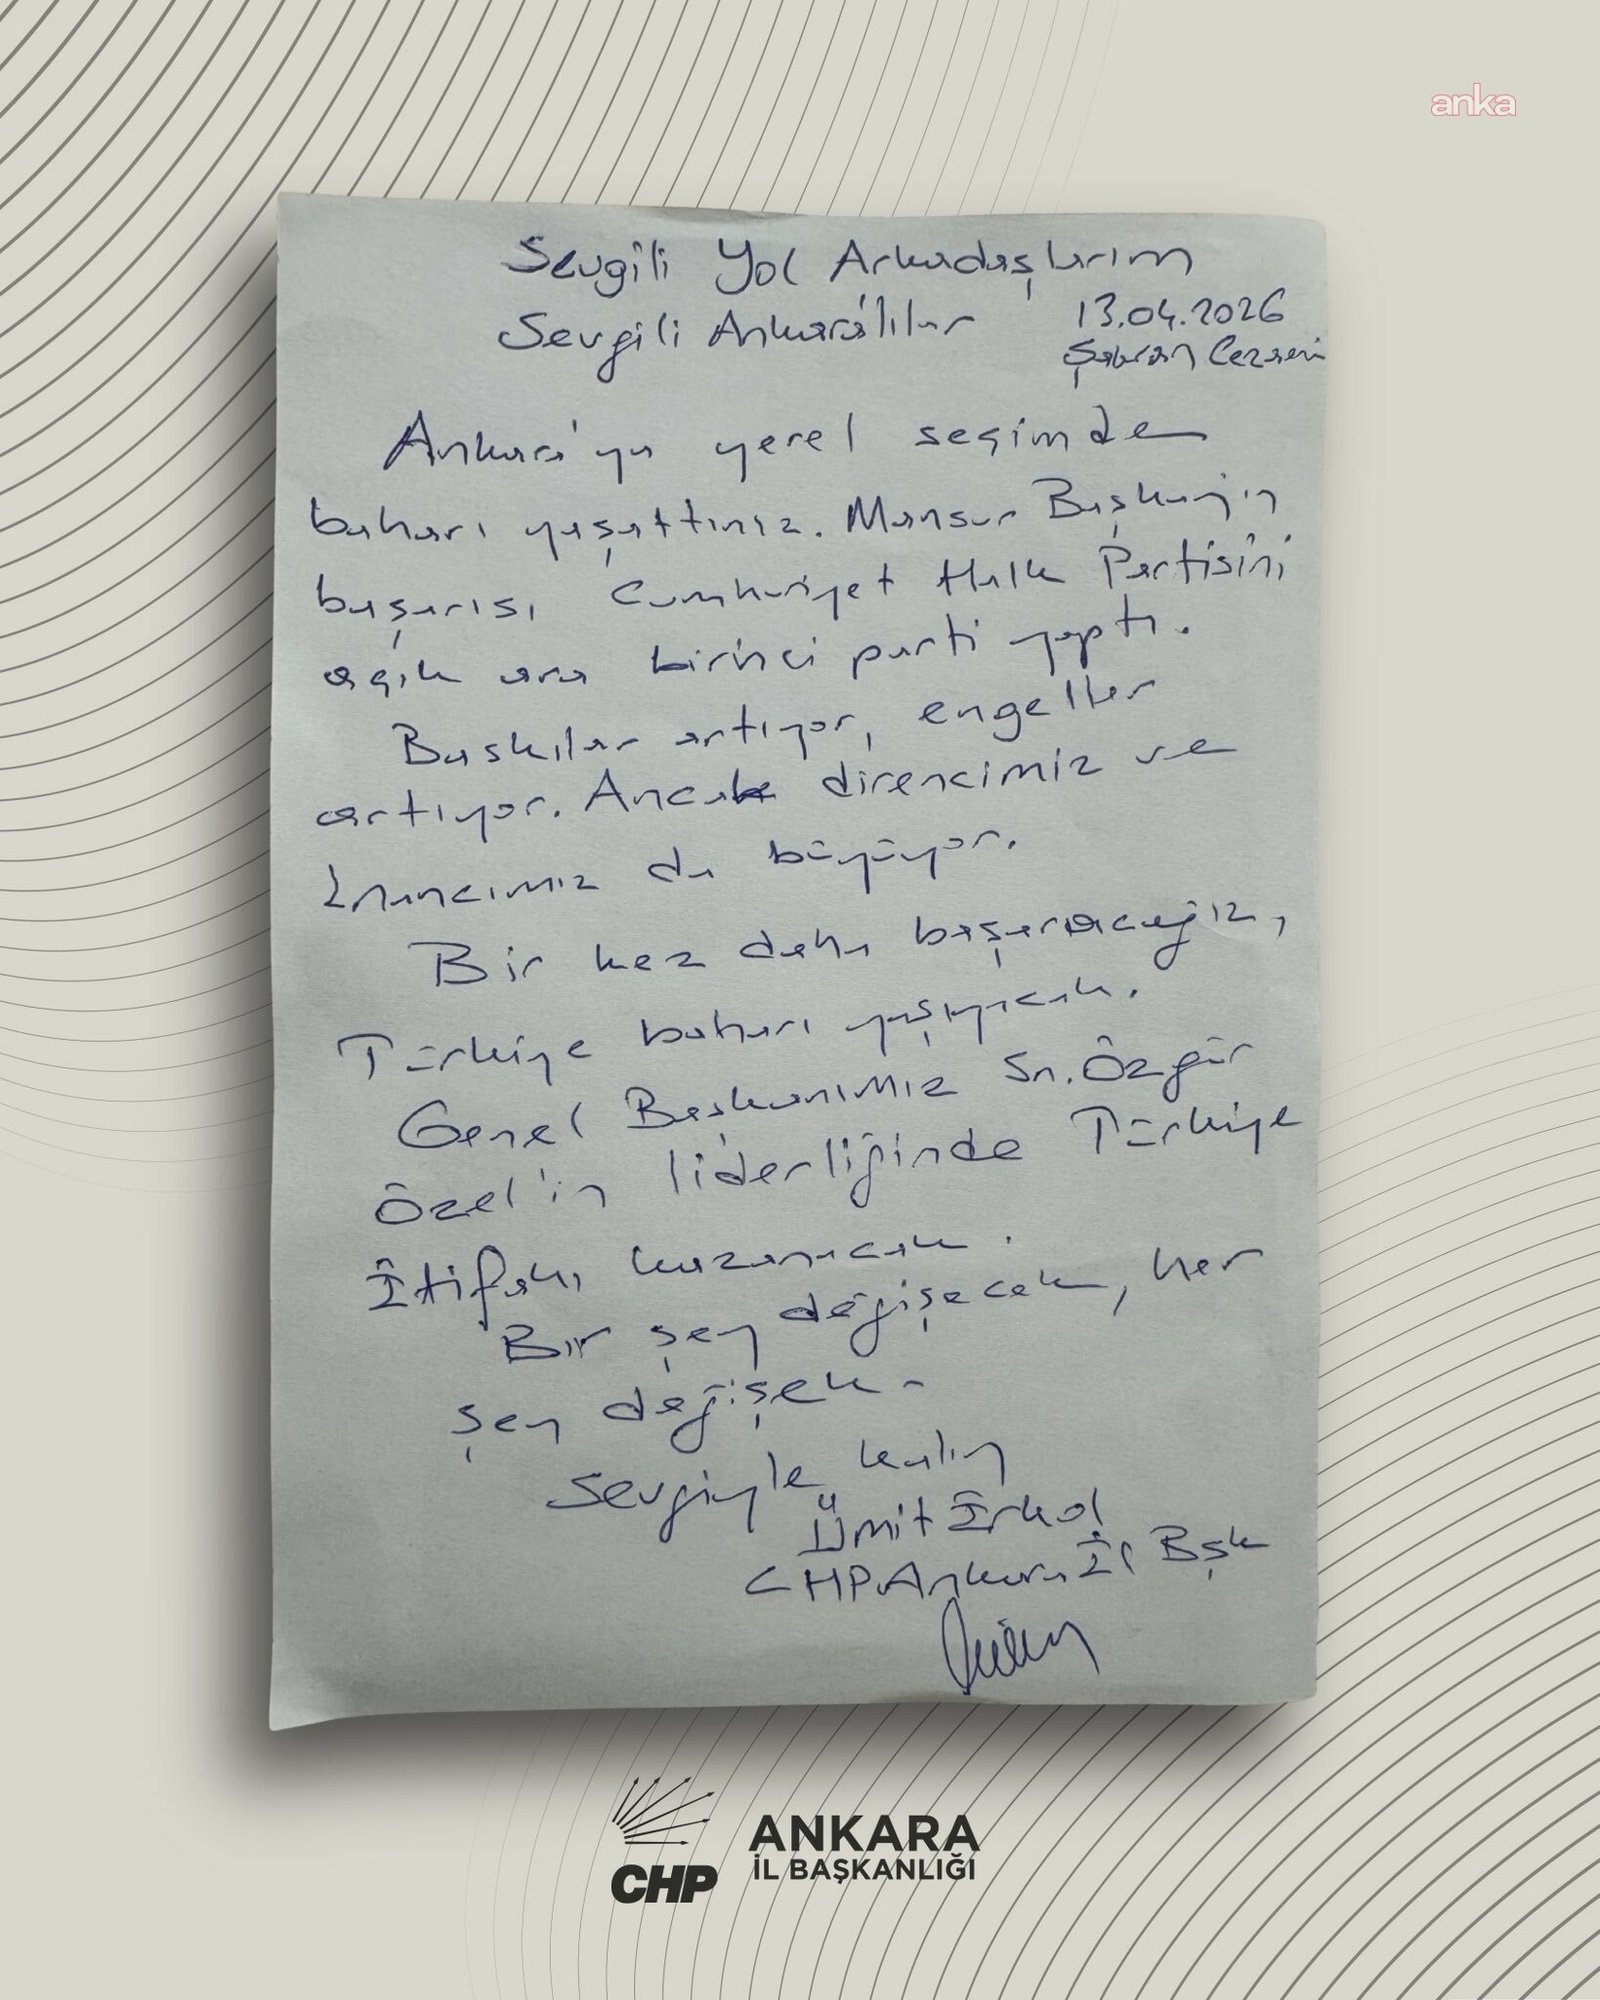 anka
Sevgili Yol Arkadaşlarım
Sevgili Ankara'lılar
13.04.2026
Şakran Cezaevi
Ankara'ya yerel seçimde
baharı yaşattınız. Mansur Başkanın
başarısı Cumhuriyet Halk Partisini
açık ara birinci parti yaptı.
Baskılar artıyor, engeller
artıyor. Ancak direncimiz ve
İnancımız da büyüyor.
Bir kez daha başaracağız,
Türkiye baharı yaşayacak.
Genel Başkanımız Sn. Özgür
Özel'in liderliğinde Türkiye
İttifakı kazanacak.
Bir şey değişecek, her
şey değişek.
Sevgiyle kalın
Ümit Erkol
CHP Ankara İl Bşk
CHP
ANKARA
İL BAŞKANLIĞI